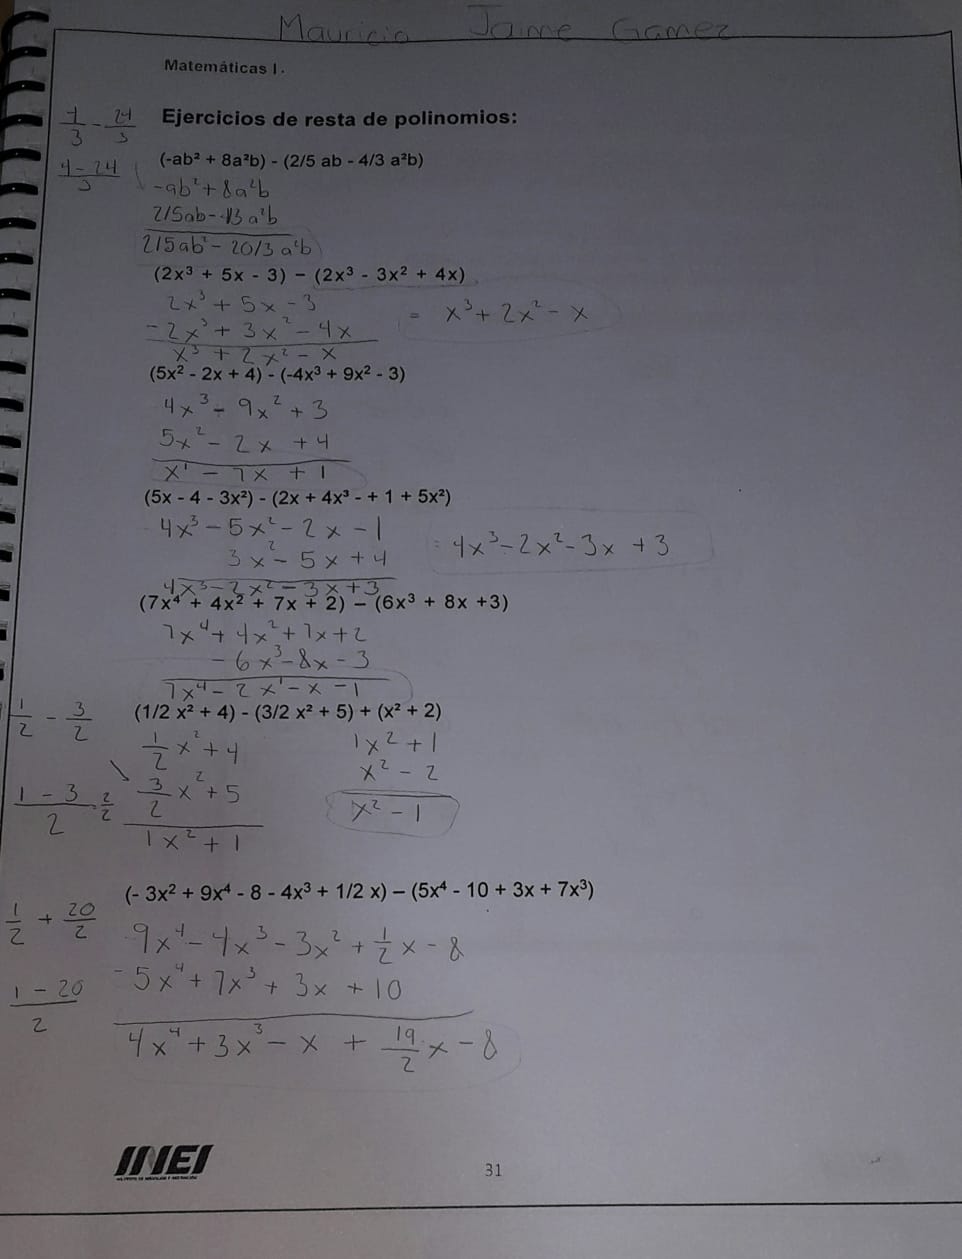 Mauricio Jaime Gamez
Matemáticas I.
Ejercicios de resta de polinomios:
4/3 - 24/3
4-24/3
(-ab² + 8a²b) - (2/5 ab - 4/3 a²b)
-ab² + 8a²b
2/5ab - 4/3 a²b
2/5ab² - 20/3 a²b
(2x³ + 5x - 3) – (2x³ - 3x² + 4x)
2x³ + 5x - 3
- 2x³ + 3x² - 4x
x³ + 2x² - x
= x³ + 2x² - x
(5x² - 2x + 4) - (-4x³ + 9x² - 3)
4x³ - 9x² + 3
5x² - 2x + 4
x¹ - 7x + 1
(5x - 4 - 3x²) - (2x + 4x³ - + 1 + 5x²)
4x³ - 5x² - 2x - 1
3x² - 5x + 4
4x³ - 2x² - 3x + 3
= 4x³ - 2x² - 3x + 3
(7x⁴ + 4x² + 7x + 2) – (6x³ + 8x +3)
7x⁴ + 4x² + 7x + 2
- 6x³ - 8x - 3
7x⁴ - 2x¹ - x - 1
(1/2 x² + 4) - (3/2 x² + 5) + (x² + 2)
1/2 - 3/2
1/2 x² + 4
3/2 x² + 5
1x² + 1
1 - 3/2 = 2/2
1x² + 1
x² - 2
x² - 1
(- 3x² + 9x⁴ - 8 - 4x³ + 1/2 x) – (5x⁴ - 10 + 3x + 7x³)
1/2 + 20/2
1 - 20/2
9x⁴ - 4x³ - 3x² + 1/2 x - 8
- 5x⁴ + 7x³ + 3x + 10
4x⁴ + 3x³ - x + 19/2 x - 8
INEI
31